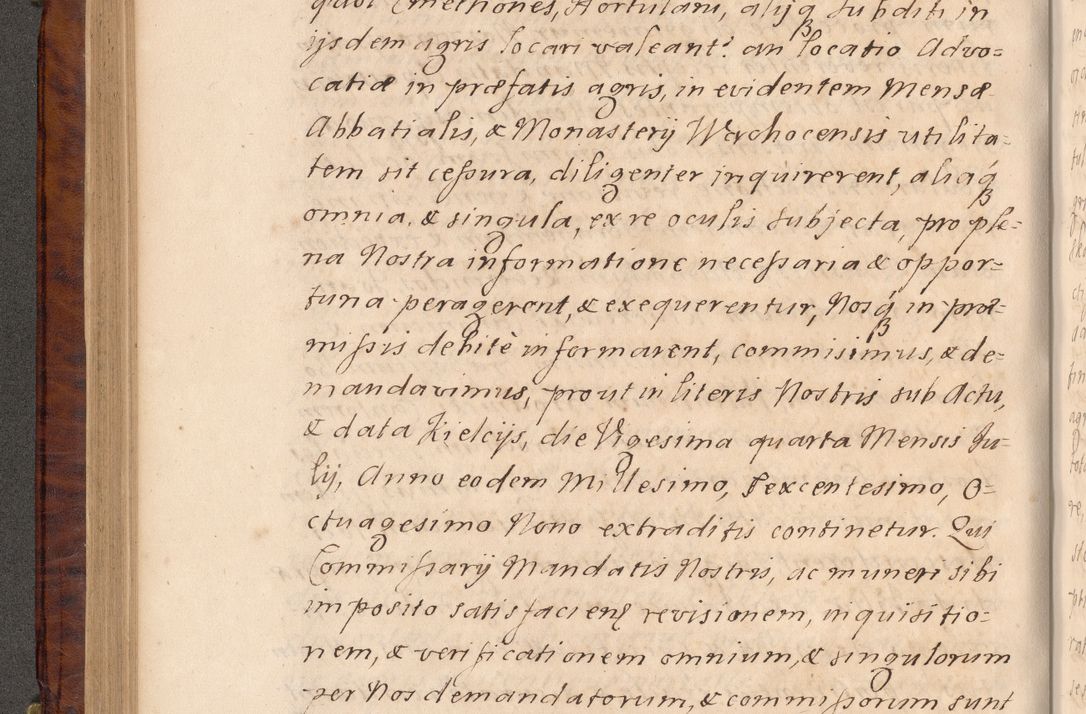 quot Cmethones, Hortulani, aliiq subditi in
ijsdem agris locari valeant? an locatio Advo=
catiæ in præfatis agris, in evidentem Mensæ
Abbatialis, & Monasterij Wochocensis utilita=
tem sit cessura, diligenter inquirerent, aliaq
omnia, & singula, ex re oculis subjecta, pro ple=
na Nostra informatione necessaria & oppor=
tuna peragerent, & exequerentur, Nosq in præ=
missis debitè informarent, commisimus, & de=
mandavimus, prout in literis Nostris sub Actu,
& data Kielcijs, die Vigesima quarta Mensis Ju=
lij, Anno eodem Millesimo, Sexcentesimo, O=
ctuagesimo Nono extraditis continetur. Qui
Commissarij Mandatis Nostris, ac muneri sibi
imposito satisfacien revisionem, inquisitio=
nem, & verificationem omnium, & singulorum
per Nos demandatorum, & commissorum sunt